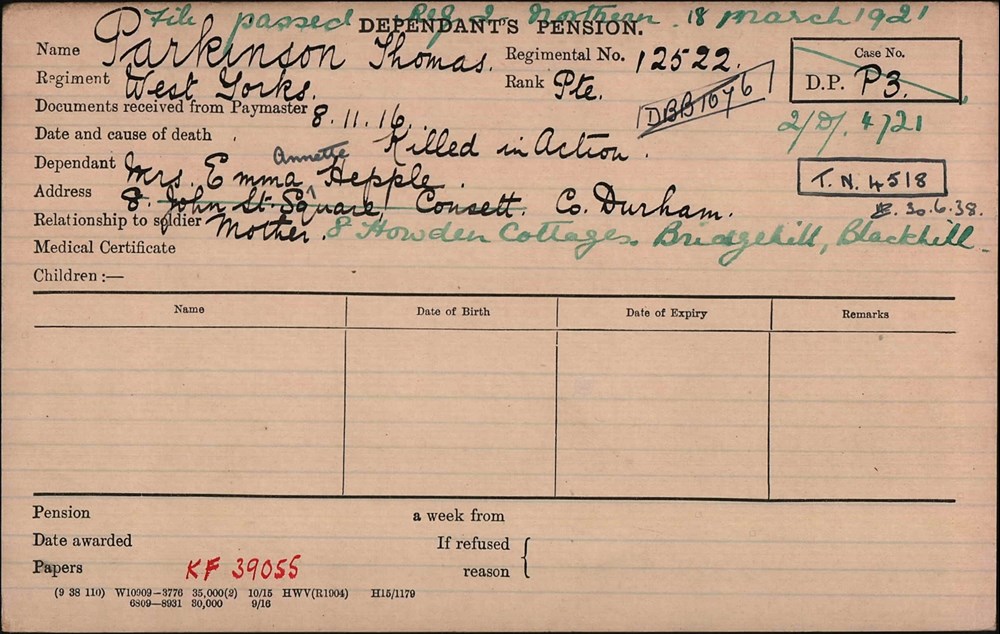 File passed Reg 2. Northern. 18 march 1921
DEPENDANT'S PENSION.
Name Parkinson Thomas. Regimental No. 12522.
Case No.
D.P. P3.
Regiment West Yorks. Rank Pte.
DBB1076
Documents received from Paymaster 8.11.16.
2/D/. 4721
Date and cause of death Killed in Action.
Annette
Dependant Mrs. Emma Hepple.
T.N. 4518
Address 8. John St. Square, Consett. Co. Durham.
30.6.38.
Relationship to soldier Mother. 8 Howden Cottages. Bridgehill, Blackhill
Medical Certificate
Children :—
Name Date of Birth Date of Expiry Remarks
Pension a week from
Date awarded If refused
Papers KF 39055 reason
(9 38 110) W10909—3776 35,000(2) 10/15 HWV(R1904) H15/1179
6809—8931 80,000 9/16